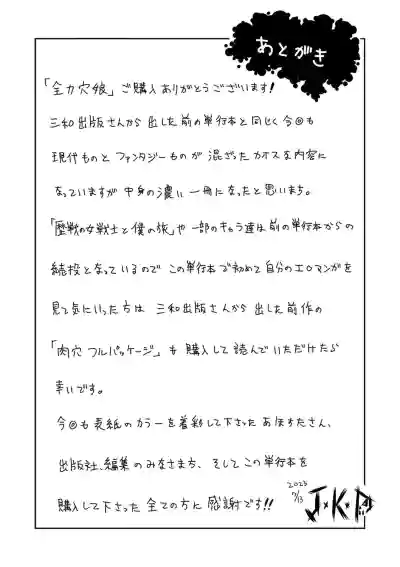 あとがき
「全力穴娘」ご購入ありがとうございます!
三和出版さんから出した前の単行本と同じく今回も
現代ものとファンタジーものが混ざったカオスな内容に
なっていますが中身の濃い一冊になったと思いまち。
「歴戦の女戦士と僕の旅」や一部のキャラ達は前の単行本からの
続投となっているのでこの単行本で初めて自分のエロマンガを
見て気にいった方は三和出版さんから出した前作の
「肉穴フルパッケージ」も購入して読んでいただけたら
幸いです。
今回も表紙のカラーを着彩して下さったあほすたさん、
出版社、編集のみなさまち、そしてこの単行本を
購入して下さった全ての方に感謝です!!
2023
J・K・P